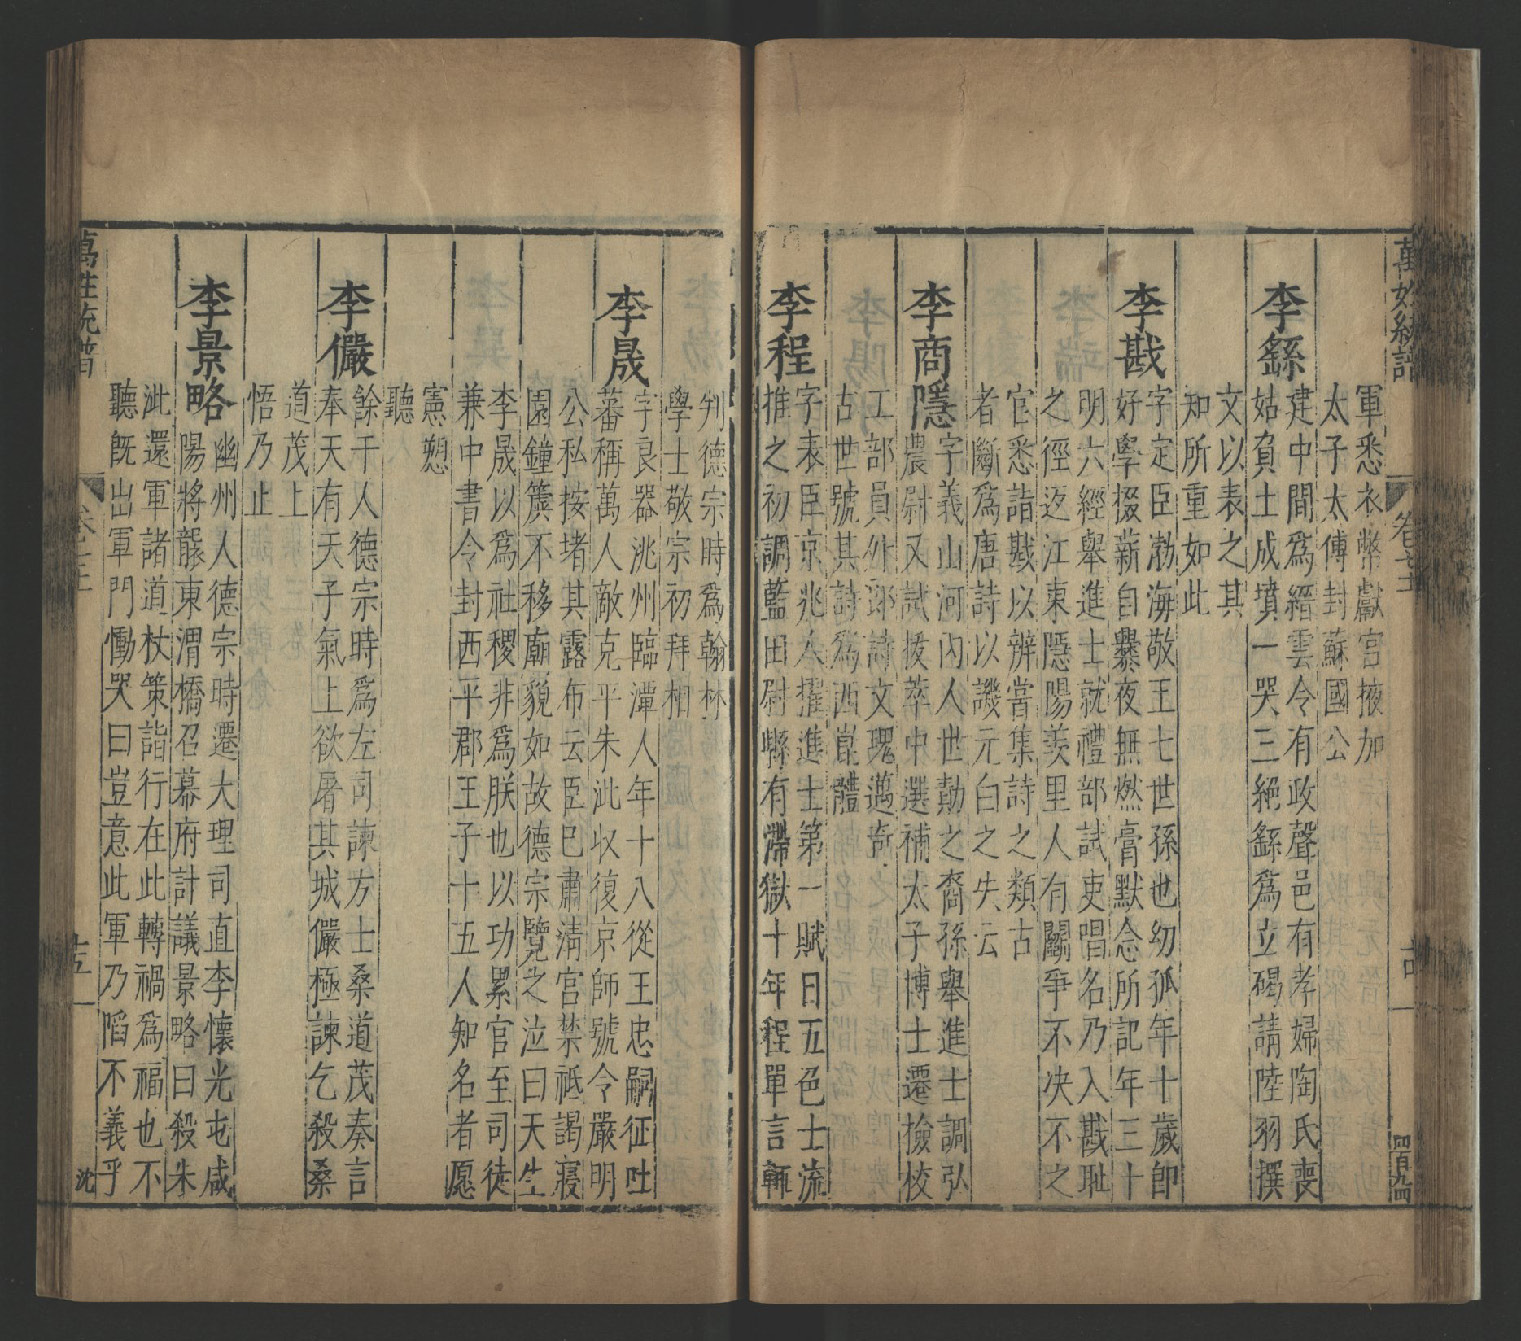 萬姓統譜
卷七十
軍悉衣幣獻宮掖加
太子太傅封蘇國公
李繇
建中間爲縉雲令有政聲邑有孝婦陶氏喪
姑負土成墳一哭三絕繇爲立碣請陸羽撰
文以表之其
知所重如此
李戡
字定臣渤海敬王七世孫也幼孤年十歲卽
好學掇薪自爨夜無燃膏默念所記年三十
明六經舉進士就禮部試吏唱名乃入戡恥
之徑返江東隱陽羨里人有鬬爭不決不之
官悉詣戡以辨嘗集詩之類古
者斷爲唐詩以譏元白之失云
李商隱
字義山河內人世勣之裔孫舉進士調弘
農尉又試拔萃中選補太子博士遷撿校
工部員外郎詩文瑰邁奇
古世號其詩爲西崑體
李程
字表臣京兆人擢進士第一賦日五色士流
推之初調藍田尉縣有滯獄十年程單言輒
判德宗時爲翰林
學士敬宗初拜相
李晟
字良器洮州臨潭人年十八從王忠嗣征吐
蕃稱萬人敵克平朱泚收復京師號令嚴明
公私按堵其露布云臣巳肅淸宮禁祗謁寢
園鐘簴不移廟貌如故德宗覽之泣曰天生
李晟以爲社稷非爲朕也以功累官至司徒
兼中書令封西平郡王子十五人知名者愿
憲愬
聽
李儼
餘干人德宗時爲左司諫方士桑道茂奏言
奉天有天子氣上欲屠其城儼極諫乞殺桑
道茂上
悟乃止
李景略
幽州人德宗時遷大理司直李懷光屯咸
陽將襲東渭橋召幕府計議景略曰殺朱
泚還軍諸道杖策詣行在此轉禍爲福也不
聽旣出軍門慟哭曰豈意此軍乃陷不義乎
萬姓統譜
十五
沈